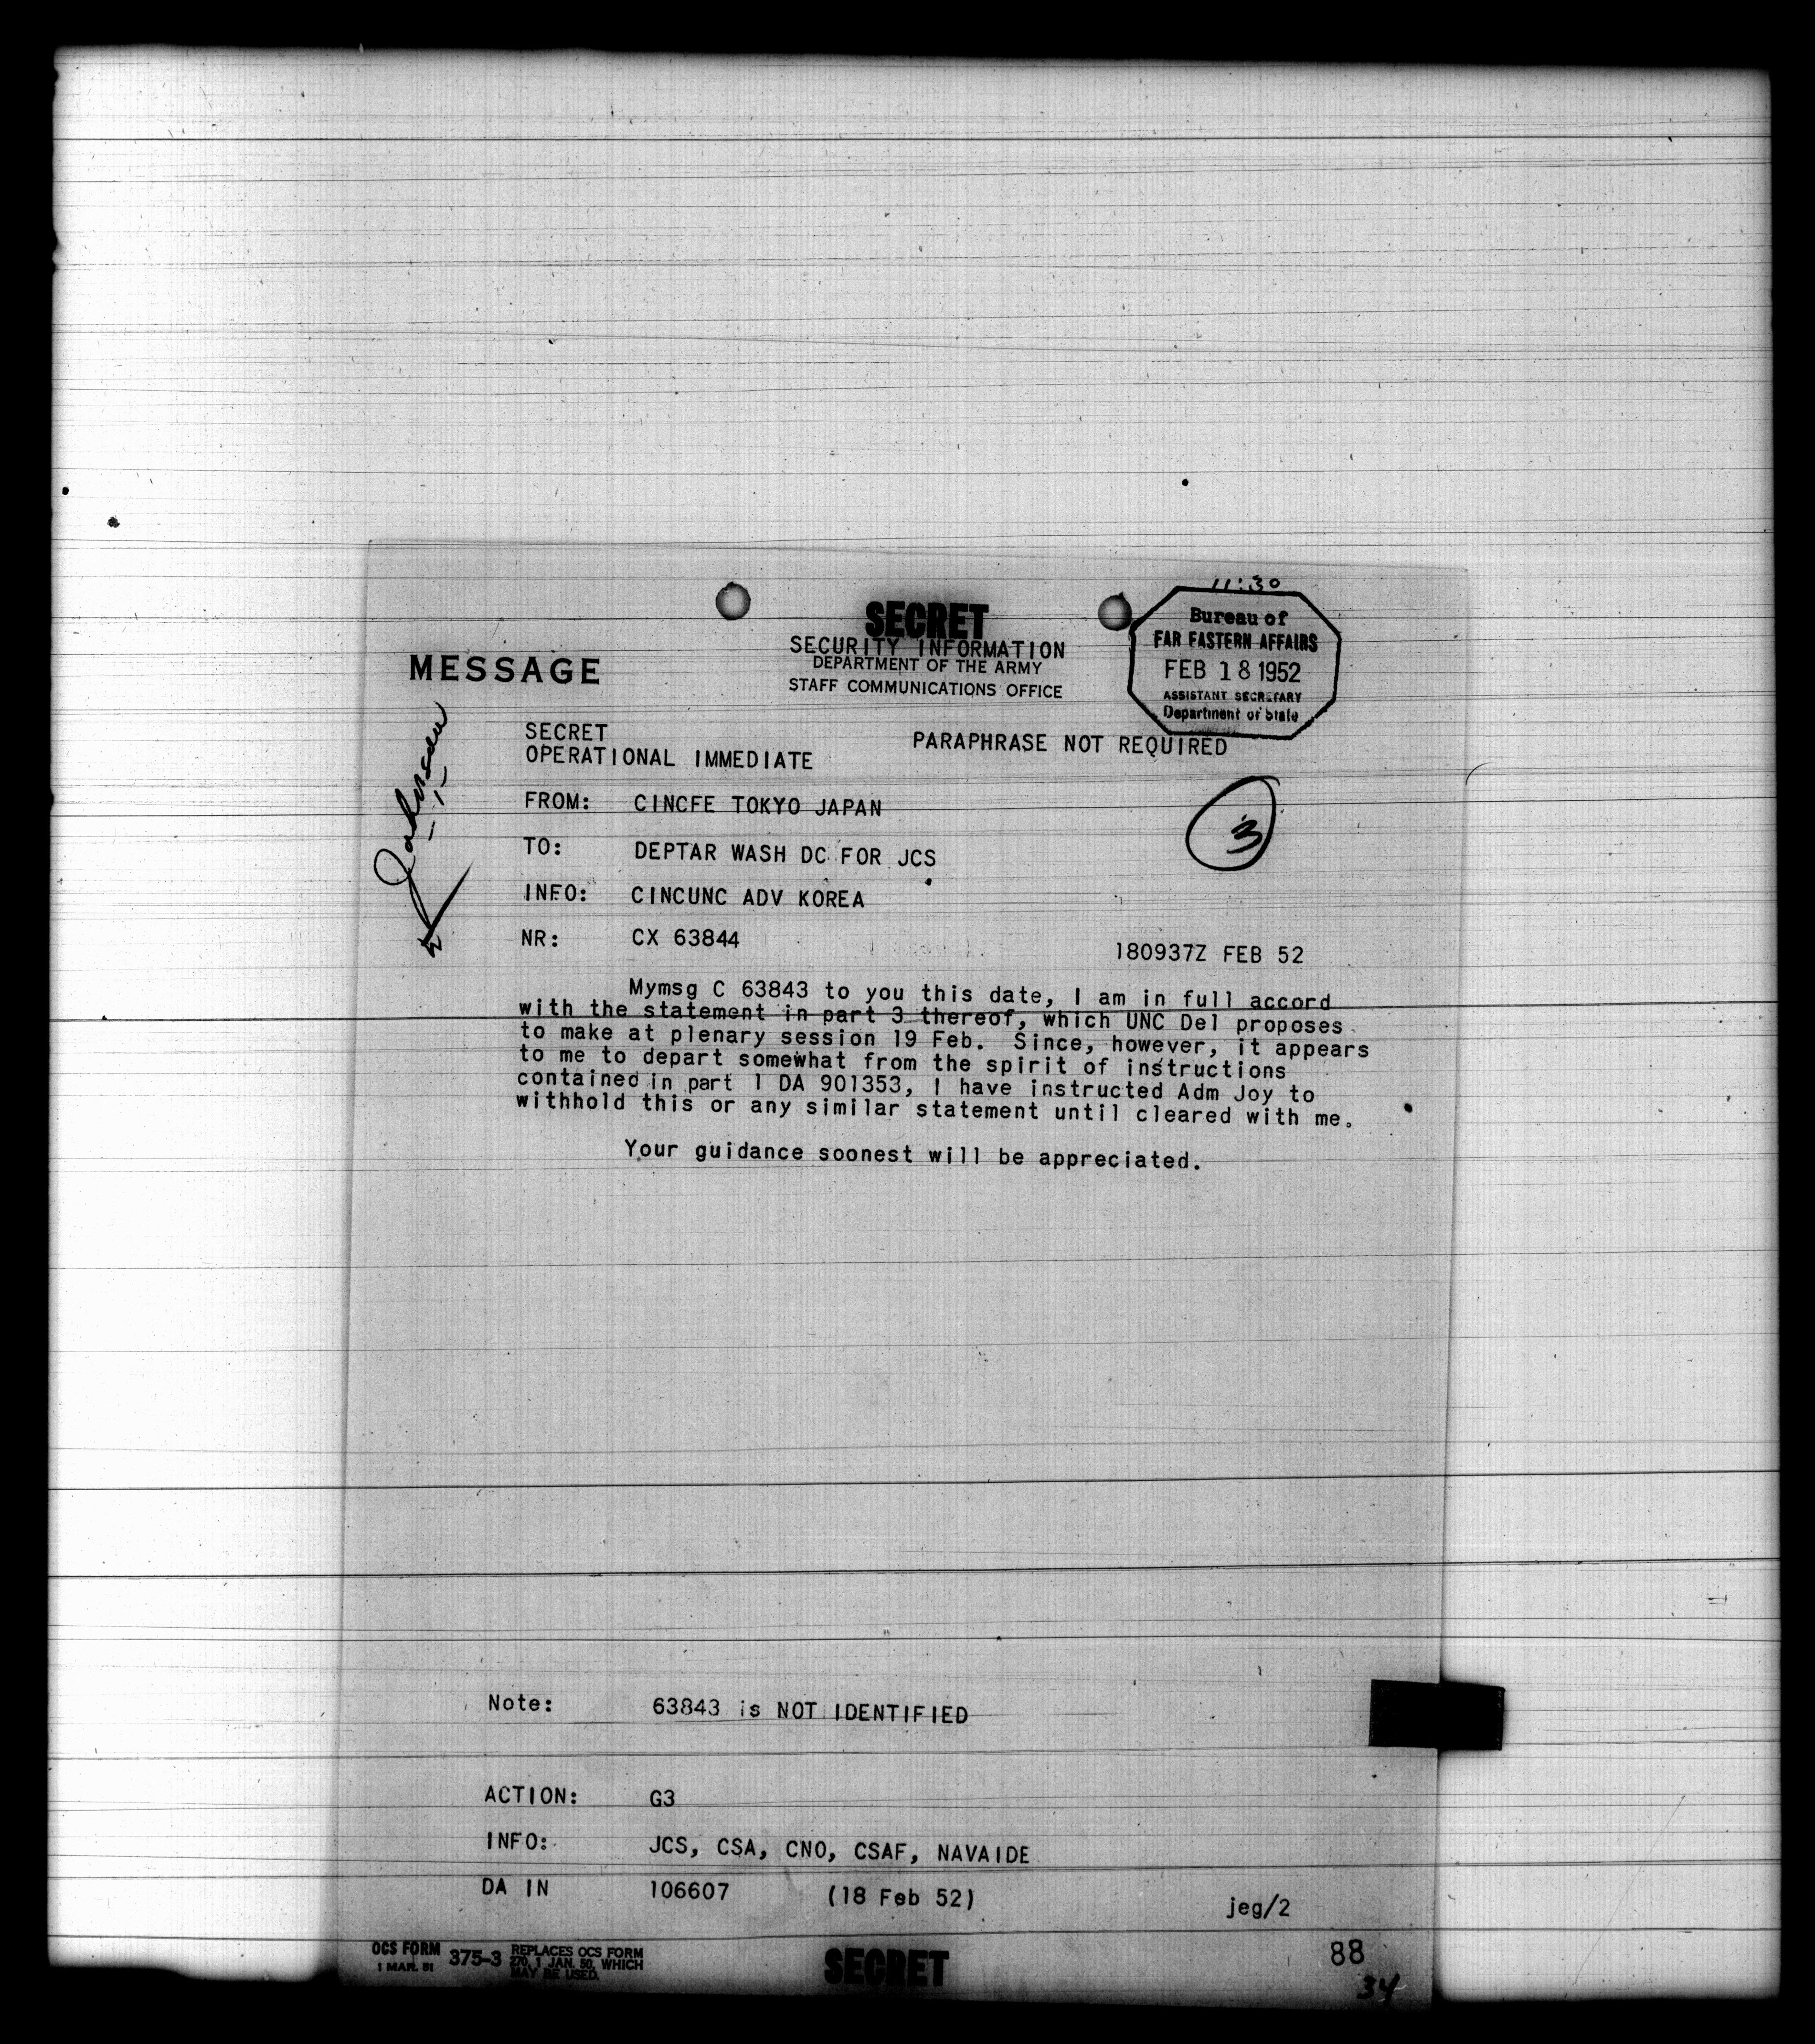 11:30
SECRET
SECURITY INFORMATION
DEPARTMENT OF THE ARMY
STAFF COMMUNICATIONS OFFICE
Bureau of
FAR EASTERN AFFAIRS
FEB 18 1952
ASSISTANT SECRETARY
Department of State
MESSAGE
Johnson
SECRET
OPERATIONAL IMMEDIATE
PARAPHRASE NOT REQUIRED
FROM: CINCFE TOKYO JAPAN
3
TO: DEPTAR WASH DC FOR JCS
INFO: CINCUNC ADV KOREA
NR: CX 63844
180937Z FEB 52
Mymsg C 63843 to you this date, I am in full accord
with the statement in part 3 thereof, which UNC Del proposes
to make at plenary session 19 Feb. Since, however, it appears
to me to depart somewhat from the spirit of instructions
contained in part 1 DA 901353, I have instructed Adm Joy to
withhold this or any similar statement until cleared with me.
Your guidance soonest will be appreciated.
Note: 63843 is NOT IDENTIFIED
ACTION: G3
INFO: JCS, CSA, CNO, CSAF, NAVAIDE
DA IN 106607 (18 Feb 52) jeg/2
OCS FORM
1 MAR. 51
375-3
REPLACES OCS FORM
270, 1 JAN. 50, WHICH
MAY BE USED.
SECRET
88
34